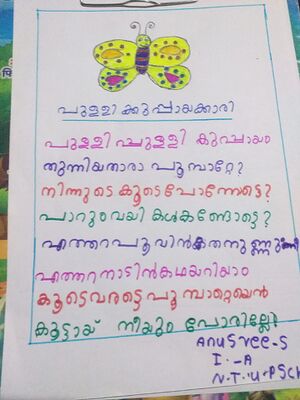 പുള്ളിക്കുപ്പായക്കാരി
പുള്ളിപ്പുള്ളി കുപ്പായം
തുന്നിയതാരാ പൂമ്പാറ്റേ?
നിന്നുടെ കൂടെപോന്നോട്ടെ?
പാറും വഴികൾകണ്ടോട്ടെ?
എത്ര പൂവിൻതേനുണ്ണും
എത്രനാടിൻകഥയറിയാം
കൂടെവരട്ടെപൂമ്പാറ്റെയെൻ
കൂട്ടായ് നീയും പോരില്ലേ?
Anusree-S
I-A
N.T.U.P.SCH